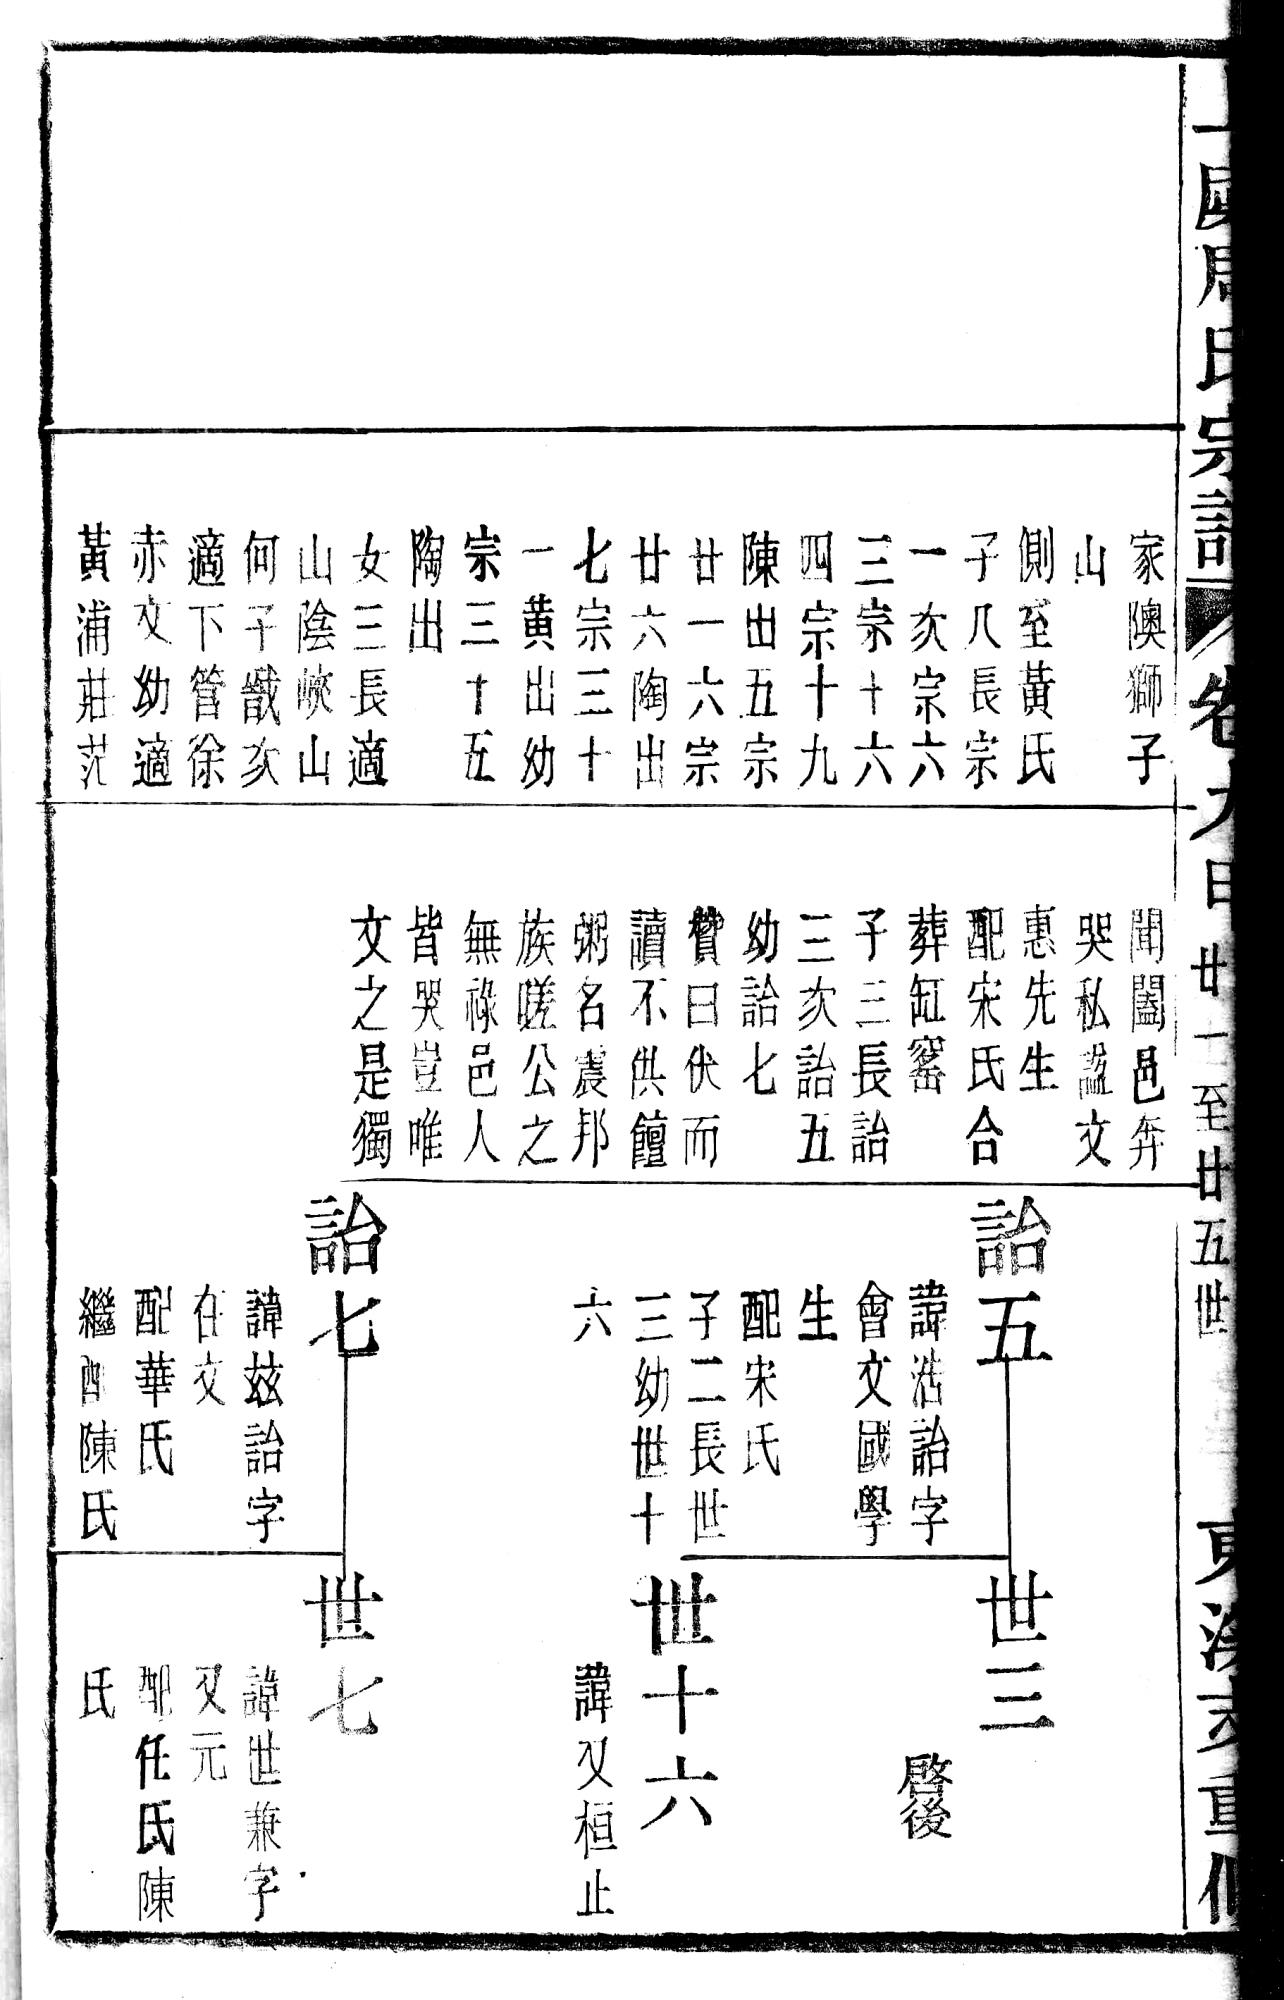 周氏宗譜
卷九
廿一至廿五世
重修
家隩獅子
山
側至黃氏
子八長宗
一次宗六
三宗十六
四宗十九
陳出五宗
廿一六宗
廿六陶出
七宗三十
一黃出幼
宗三十五
陶出
女三長適
山陰峽山
何子戩次
適下管徐
赤文幼適
黃浦莊范
聞闔邑奔
哭私諡文
惠先生
配宋氏合
葬缸窰
子三長詒
三次詒五
幼詒七
贊曰伏而
讀不供饘
粥名震邦
族嗟公之
無祿邑人
皆哭豈唯
文之是獨
詒五
諱浩詒字
會文國學
生
配宋氏
子二長世
三幼世十
六
詒七
諱茲詒字
在文
配華氏
繼配陳氏
世三
啓後
世十六
諱又桓止
世七
諱世兼字
又元
配任氏陳
氏